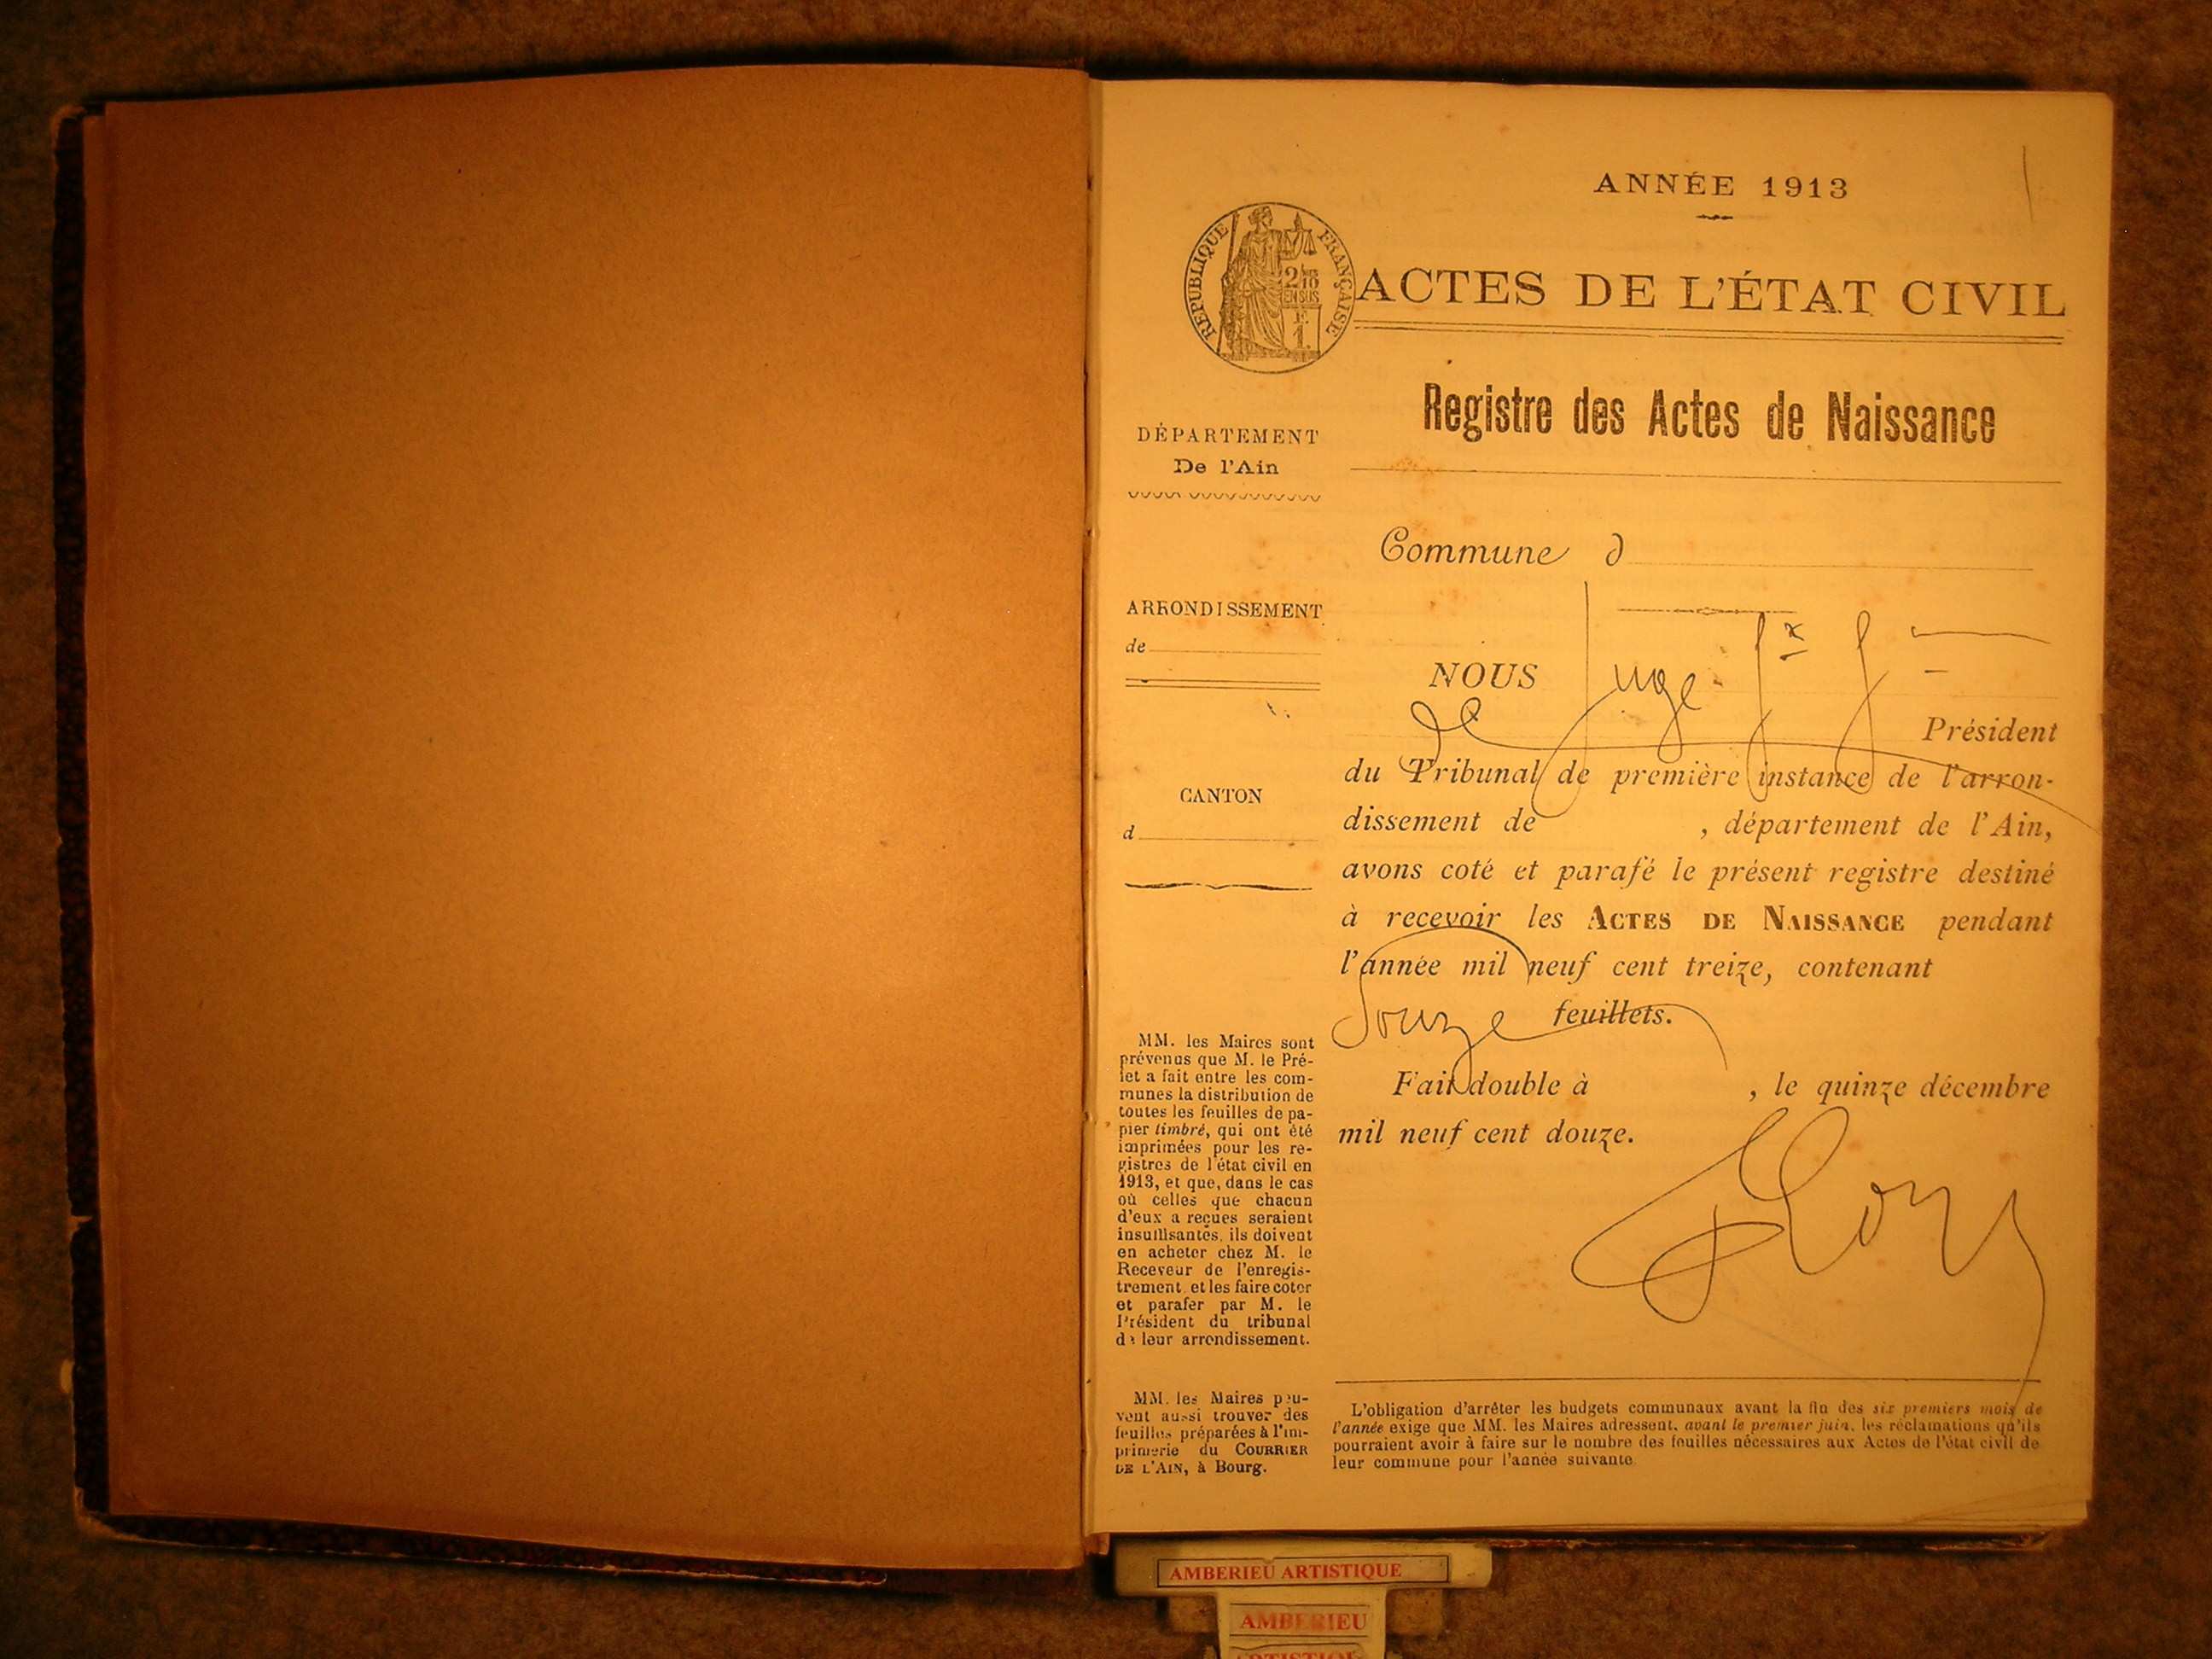 ANNÉE 1913
RÉPUBLIQUE FRANÇAISE
2/10
EN SUS
1
ACTES DE L'ÉTAT CIVIL
Registre des Actes de Naissance
DÉPARTEMENT
De l'Ain
Commune d
ARRONDISSEMENT
de
CANTON
d
MM. les Maires sont
prévenus que M. le Pré-
fet a fait entre les com-
munes la distribution de
toutes les feuilles de pa-
pier timbré, qui ont été
imprimées pour les re-
gistres de l'état civil en
1913, et que, dans le cas
où celles que chacun
d'eux a reçues seraient
insuffisantes, ils doivent
en acheter chez M. le
Receveur de l'enregis-
trement et les faire coter
et parafer par M. le
Président du tribunal
de leur arrondissement.
MM. les Maires peu-
vent aussi trouver des
feuilles préparées à l'im-
primerie du COURRIER
DE L'AIN, à Bourg.
NOUS Juge
de Président
du Tribunal de première instance de l'arron-
dissement de , département de l'Ain,
avons coté et parafé le présent registre destiné
à recevoir les ACTES DE NAISSANCE pendant
l'année mil neuf cent treize, contenant
Douze feuillets.
Fait double à , le quinze décembre
mil neuf cent douze.
L'obligation d'arrêter les budgets communaux avant la fin des six premiers mois de
l'année exige que MM. les Maires adressent, avant le premier juin, les réclamations qu'ils
pourraient avoir à faire sur le nombre des feuilles nécessaires aux Actes de l'état civil de
leur commune pour l'année suivante.
AMBERIEU ARTISTIQUE
AMBERIEU
ARTISTIQUE